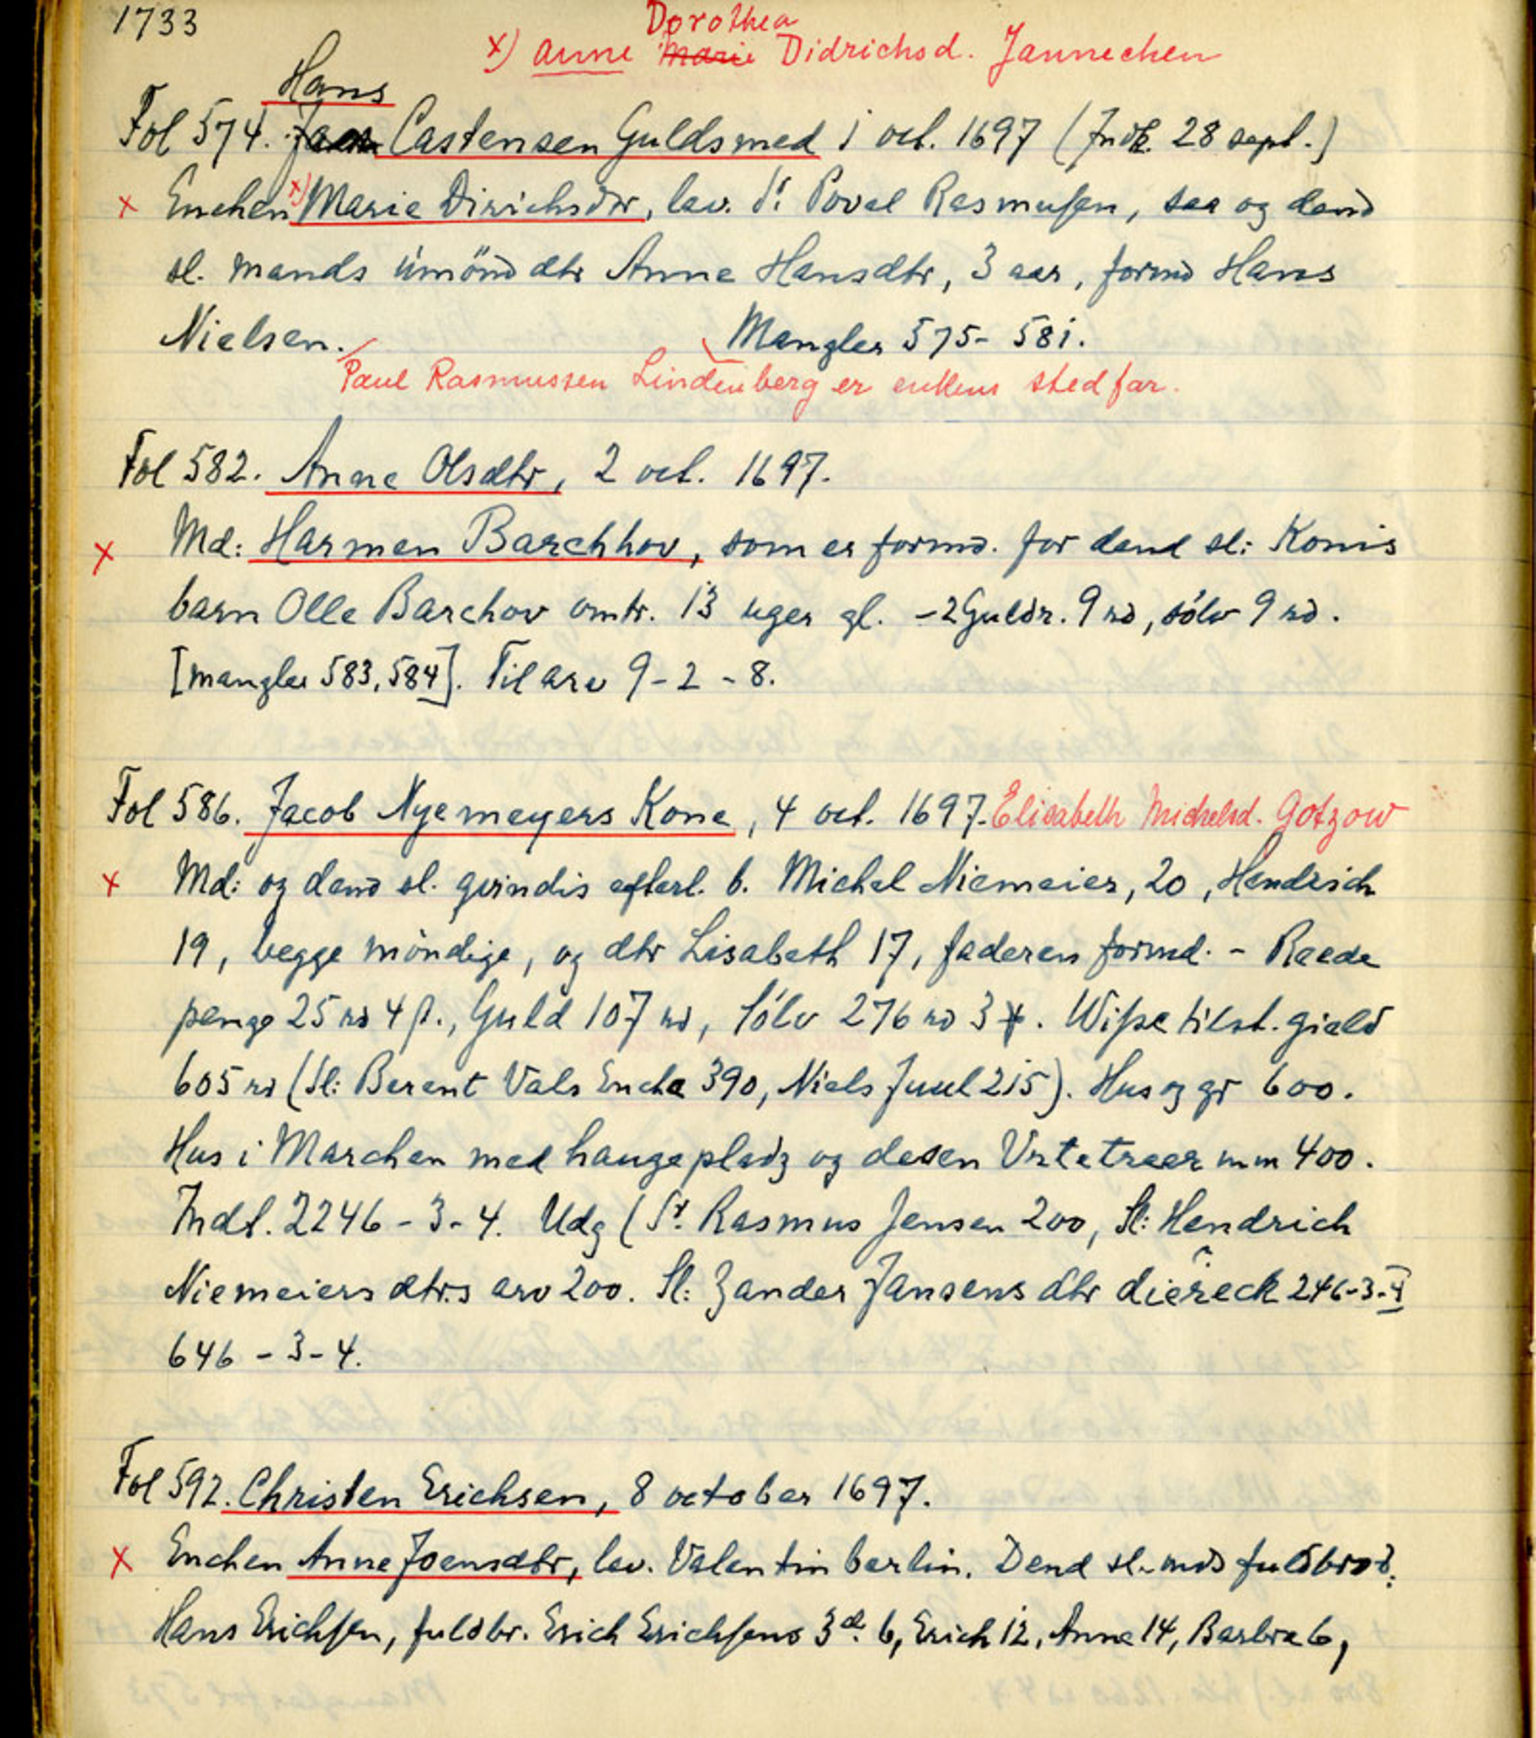 1733
Dorothea
x) Anne Marie Didrichsd. Jannechen
Hans
Fol 574. Jacob Castensen Guldsmed 1 oct. 1697 (Indk. 28 sept.)
x Enchen x) Marie Dirichsdtr, lav. Sr Povel Rasmusen, saa og dend
sl. mands umönd dtr Anne Hansdtr, 3 aar, formd Hans
Nielsen. Mangler 575- 581.
Paul Rasmussen Lindenberg er enkens stedfar.
Fol 582. Anne Olsdtr, 2 oct. 1697.
x Md: Harmen Barchhov, som er formd. for dend sl: Konis
barn Olle Barchov omtr. 13 uger gl. -2 Guldr. 9 rd, sölv 9 rd.
[mangler 583, 584]. Til arv 9-2-8.
Fol 586. Jacob Nyemeyers Kone, 4 oct. 1697. Elisabeth Michelsd. Gotzow
x Md: og dend sl. qvindis efterl. b. Michel Niemeier, 20, Hendrich
19, begge möndige, og dtr Lisabeth 17, faderen formd. - Reede
penge 25 rd 4 ß., Guld 107 rd, Sölv 276 rd 3 ꝟ. Wisse tilst. gield
605 rd (Sl: Berent Vals Encke 390, Niels Juul 215). Hus og gr 600.
Hus i Marchen med haugepladz og desen Urtetraer mm 400.
Indt. 2246-3-4. Udg (Sr. Rasmus Jensen 200, Sl: Hendrich
Niemeiers dtrs arv 200. Sl: Zander Jansens dtr diereck 246-3-4
646-3-4.
Fol 592. Christen Erichsen, 8 october 1697.
x Enchen Anne Joensdtr, lav. Valentin berlin. Dend sl. mds fuldbrod.
Hans Erichsen, fuldbr. Erich Erichsens 3de b, Erich 12, Anne 14, Barbra 6,